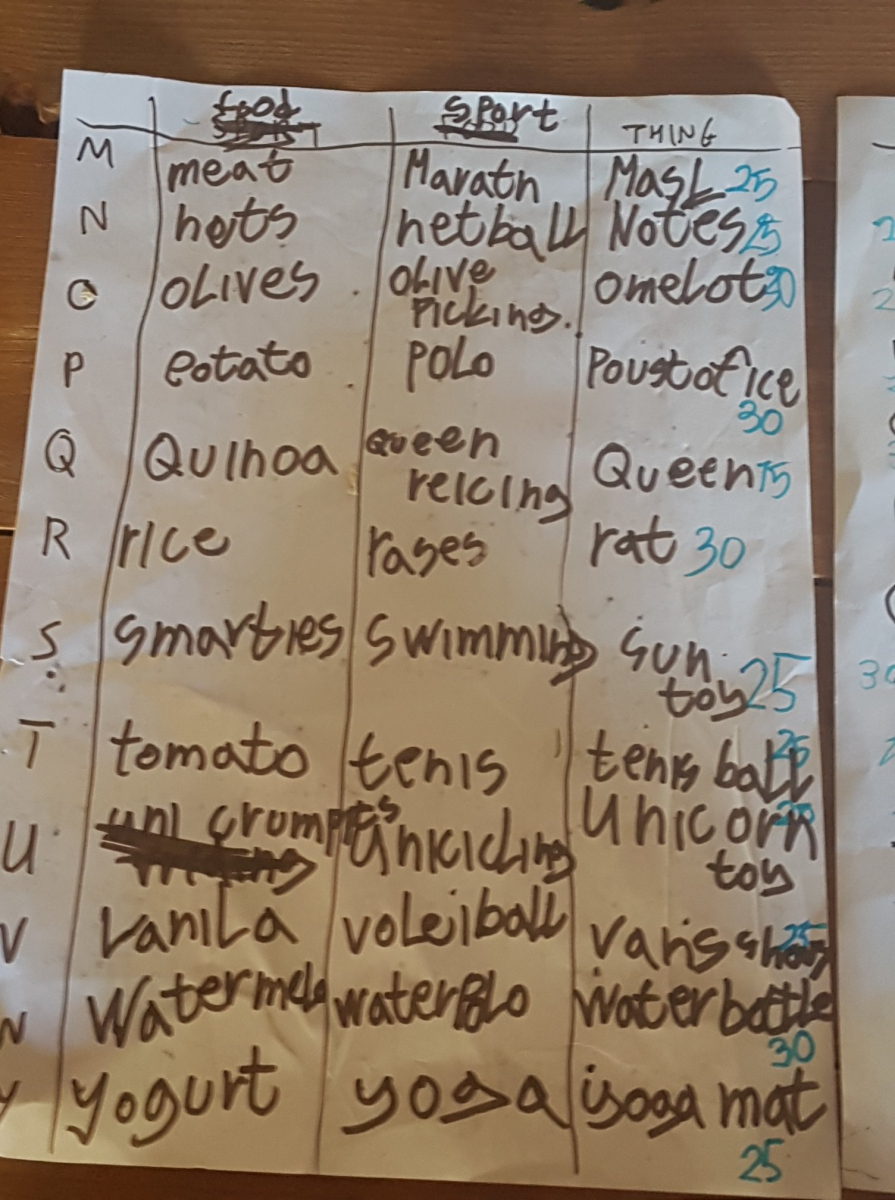 food sport THING
M meat Marath Mask 25
N nots netball Notes 25
O OLIVES OLIVE omelot 30
Picking.
P Potato POLO Poustofice
30
Q Quinoa Queen Queen 15
reicing
R rice rases rat 30
S smarties swimming sun
toy 25
T tomato tenis tenis ball 25
U uni crumpits unicicling unicorn
toy
V vanila voleiball 25
W Watermelo waterpolo waterbottle
30
Y yogurt yoga yoga mat
25